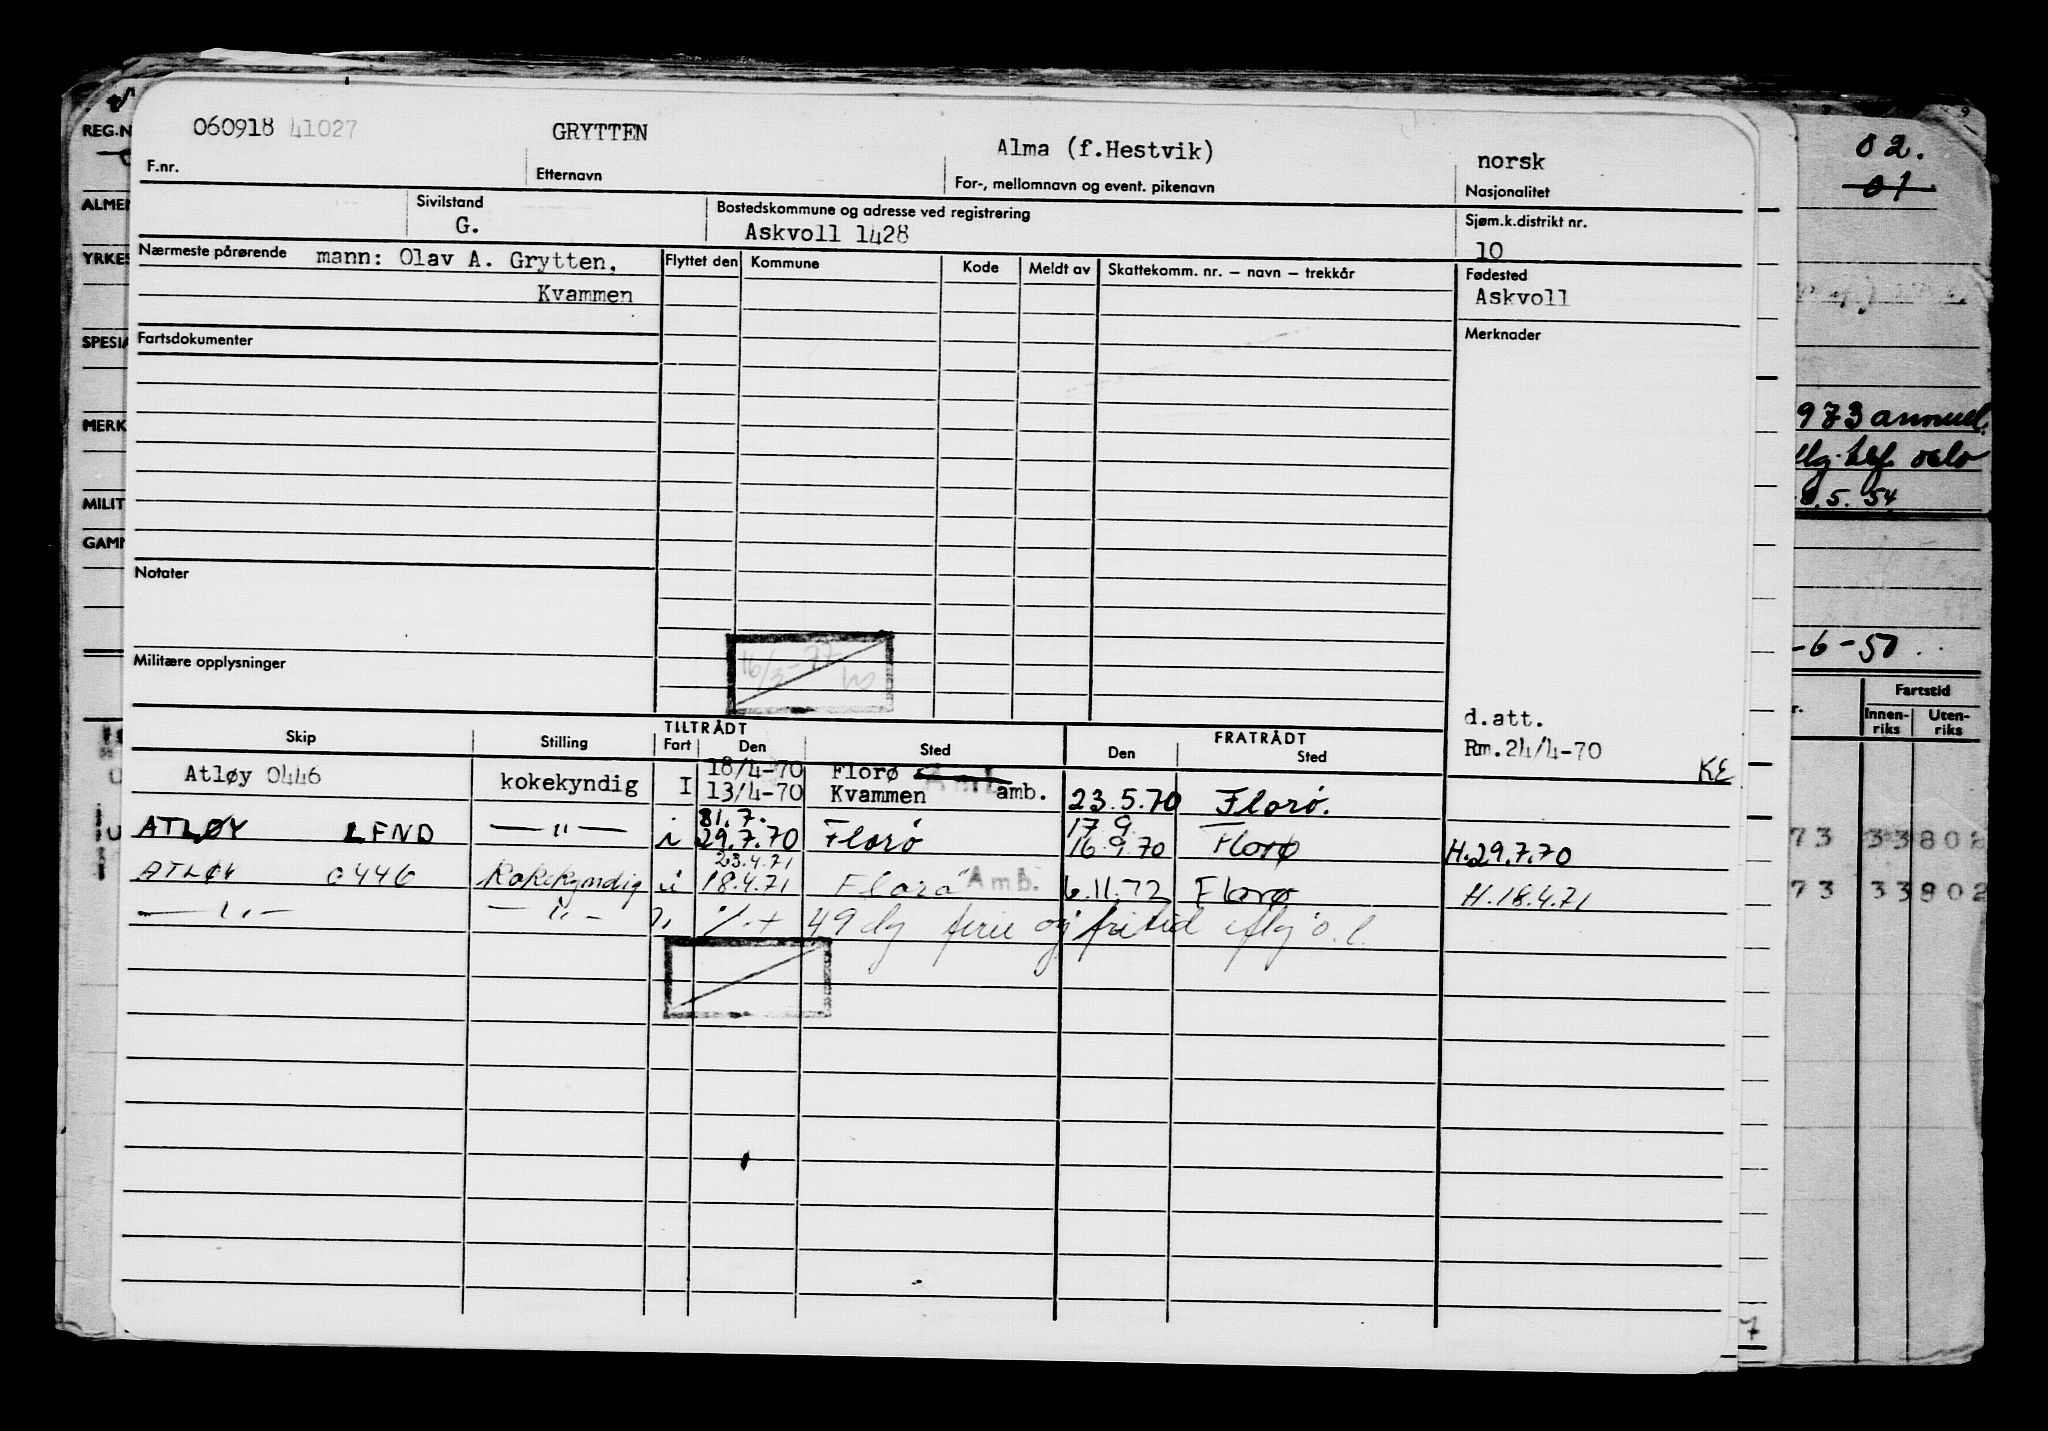 060918 41027 GRYTTEN Alma (f.Hestvik) norsk
F.nr. Etternavn For-, mellomnavn og event. pikenavn Nasjonalitet
Sivilstand Bostedskommune og adresse ved registrering Sjøm.k.distrikt nr.
G. Askvoll 1428 10
Nærmeste pårørende mann: Olav A. Grytten, Flyttet den Kommune Kode Meldt av Skattekomm. nr. – navn – trekkår Fødested
Kvammen Askvoll
Fartsdokumenter Merknader
Notater
Militære opplysninger
16/3-77
d.att.
Rm.24/4-70 KE
TILTRÅDT FRATRÅDT
Skip Stilling Fart Den Sted Den Sted
18/4-70 Florø
Atløy 0446 kokekyndig I 13/4-70 Kvammen amb. 23.5.70 Florø.
31.7. 17 9
ATLØY LFND —"— i 29.7.70 Florø 16.9.70 Florø H.29.7.70
23.4.71
ATLØY 0446 Kokekyndig i 18.4.71 Florø Amb. 6.11.72 Florø H.18.4.71
—"— —"— " + 49 dg ferie og fritid iflg
REG.N
ALMEN
YRKES
SPESIA
MERK
MILIT
GAMM
02.
01
973 annul.
oslo
5.54
-6-50
Fartstid
r. Innen-riks Uten-riks
73 33802
73 33802
7